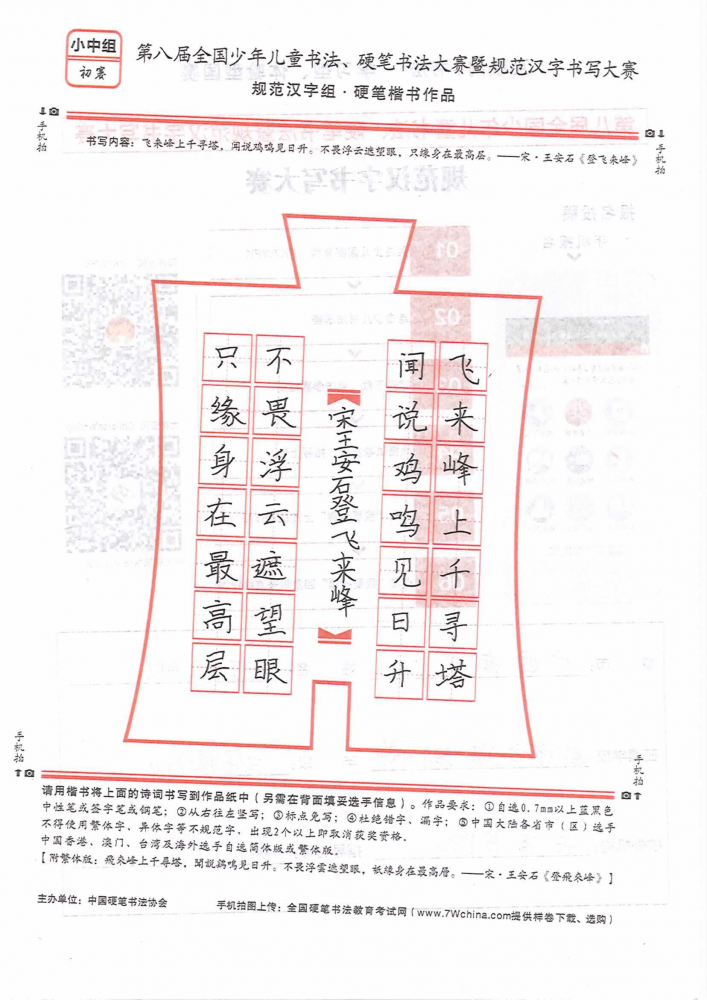 小中组
初赛
第八届全国少年儿童书法、硬笔书法大赛暨规范汉字书写大赛
规范汉字组·硬笔楷书作品
手机拍
手机拍
书写内容：飞来峰上千寻塔，闻说鸡鸣见日升。不畏浮云遮望眼，只缘身在最高层。——宋·王安石《登飞来峰》
飞来峰上千寻塔
闻说鸡鸣见日升
宋王安石登飞来峰
不畏浮云遮望眼
只缘身在最高层
手机拍
手机拍
请用楷书将上面的诗词书写到作品纸中（另需在背面填妥选手信息）。作品要求：①自选0.7mm以上蓝黑色
中性笔或签字笔或钢笔；②从右往左竖写；③标点免写；④杜绝错字、漏字；⑤中国大陆各省市（区）选手
不得使用繁体字、异体字等不规范字，出现2个以上即取消获奖资格.
中国香港、澳门、台湾及海外选手自选简体版或繁体版.
【附繁体版：飛來峰上千尋塔，聞說鷄鳴見日升。不畏浮雲遮望眼，祇緣身在最高層。——宋·王安石《登飛來峰》】
主办单位：中国硬笔书法协会
手机拍图上传：全国硬笔书法教育考试网（www.7Wchina.com提供样卷下载、选购）